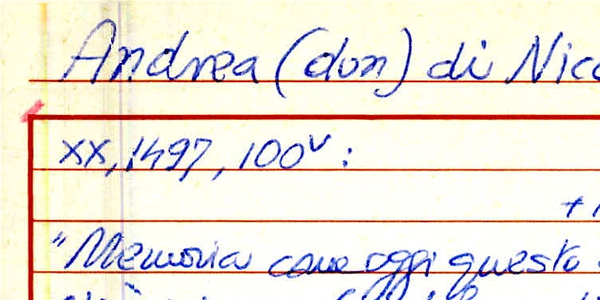 Andrea (don) di Nico
XX, 1497, 100v :
"Memoria come oggi questo